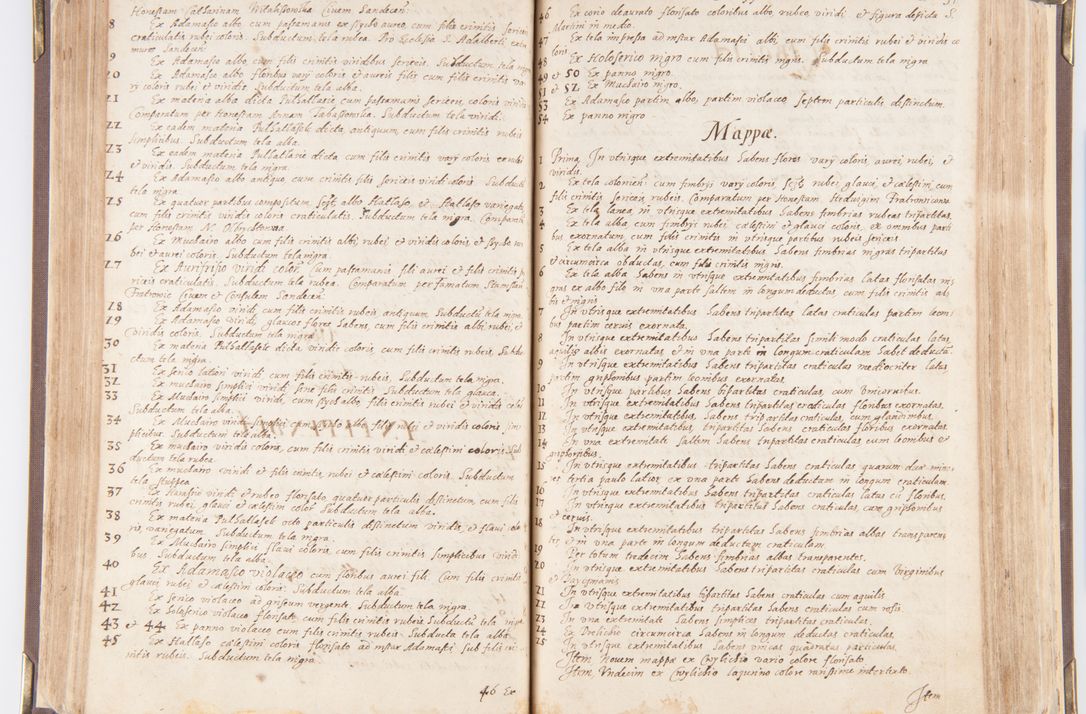 Honestam Catharinam Vitalissonka Civem Sandecen.
8 Ex Adamasco albo cum passamanis ex scycho aureo, cum filis crinitis sericeis
craticulatis rubei coloris. Subductum tela rubea. Pro Ecclesia S. Adalberti extra
muros Sanden.
9 Ex Adamasco albo, cum filis crinitis viridibus sericeis. Subductum tela nigra
20 Ex Adamasco albo floribus varÿ coloris et aureis filis cum filis crinitis va-
rÿ coloris rubei et viridis. Subductum tela alba.
21 Ex materia alba dicta Pulhatlasie cum passamanis sericeis, coloris viridis
Comparatum per Honestam Annam Tabassowska. Subductum tela viridi.
22 Ex eadem materia Pulhatlasek dicta, antiquum, cum filis crinitis rubeis
simplicibus. Subductum tela alba.
23 Ex eadem materia Pulhatlasie dicta cum filis crinitis varÿ coloris rubei
et viridis. Subductum tela nigra.
24 Ex Adamasco albo antiquo, cum crinitis filis sericeis viridi coloris. Subducti
tela nigra.
25 Ex quatuor partibus compositum, scilicet albo Hatlaso, et Hatlaso variegato
cum filis crinitis viridis coloris craticulatis. Subductum tela nigra. Comparat.
per Honestam N. Olbrychtowna
26 Ex Muchairo albo cum filis crinitis albi, rubei et viridis coloris, et scycho ru-
bei et aurei coloris. Subductum tela nigra.
27 Ex Aurifrisio viridi color. Cum passamanis fili aurei et filis crinitis se-
riceis craticulatis. Subductum tela rubea. Comparatum per famatum Stanislau
Fratrowic Civem et Consulem Sandecen.
28 Ex Adamasco viridi, cum filis crinitis rubeis, antiquum. Subductu tela nigra.
29 Ex Adamasco viridi, glaucos flores habens, cum filis crinitis albi, rubei, et
viridis coloris. Subductum tela nigra.
30 Ex materia Pulhatlasek dicta viridis coloris, cum filis crinitis rubeis. Subdu-
ctum tela nigra.
31 Ex serico latiori viridi, cum filis crinitis rubeis. Subductum tela nigra.
32 Ex muchairo simplici viridi, sine filis crinitis. Subductum tela glauca.
33 Ex Muchairo simplici viridi, cum scycho albo, filis crinitis rubei et viridis colo.
Subductum tela alba.
34 Ex Muchairo viridi simplici, cum filis albo, rubei et viridis coloris, sim-
plicibus. Subductum tela alba.
35 Ex muchairo viridis coloris, cum filis crinitis viridi et cælestini coloris. Sub-
ductum tela rubea.
36 Ex muchairo viridi et filis crinitis rubei et cælestini coloris. Subductum
tela stuppea.
37 Ex Harasio viridi et rubeo florisato, quatuor particulis distinctum, cum filis
crinitis rubei, glauci et cælestini color. Subductum tela alba.
38 Ex materia Pulhatlasek octo particulis distinctum viridis, et flavi colo
ris, variegatum. Subductum tela nigra.
39 Ex Muchairo simplici flavi coloris, cum filis crinitis simplicibus viridi-
bus. Subductum tela alba.
40 Ex Adamasco violaceo cum floribus aurei fili. Cum filis crinitis
glauci rubei et cælestini coloris. Subductum tela alba.
41 Ex serico violaceo ad griseum vergente. Subductum tela nigra.
42 Ex holoserico violaceo florisato, cum filis crinitis rubeis. Subducti tela nigra
43 et 44 Ex panno violaceo cum filis crinitis rubeis. Subducta tela alba.
45 Ex Hatlaso cælestini coloris florisato ad instar Adamasci sub filis cri-
nitis rubeis. Subductum tela nigra.
46 Ex
46 Ex corio deaurato florisato coloribus albo rubeo viridi et figura depicta S.
Martini in medio.
47 Ex tela impressa ad instar Adamasci albi, cum filis crinitis rubei et viridis co
loris
48 Ex Holoserico nigro cum filis crinitis nigris. Subductum tela nigra
49 et 50 Ex panno nigro.
51 et 52. Ex Muchairo nigro.
53 Ex Adamasco partim albo, partim violaceo septem particulis distinctum.
54 Ex panno nigro
Mappæ.
1 Prima In utrisque extremitatibus habens flores varÿ coloris, aurei rubei, et
viridis.
2 Ex tela colonien. cum fimbrÿs varÿ coloris, scilicet rubei, glauci, et cælestini, cum
filis crinitis sericeis rubeis. Comparatum per Honestam Hedvigim Fratrowicowa.
3 Ex tela lanea in utrisque extremitatibus habens fimbrias rubeas tripartitas.
4 Ex tela alba cum fimbrÿs rubei, cælestini et glauci coloris, ex omnibus parti
bus exornatum, cum filis crinitis in utrisque partibus rubeis sericeis
5 Ex tela alba in utrisque extremitatibus habens fimbrias nigras tripartitas
et circumcirca obductas, cum filis crinitis nigris.
6 Ex tela alba habens in utrisque extremitatibus, fimbrias latas florisatas ni-
gras ex albo filo in una parte saltem in longum deductas, cum filis crinitis al-
bis et nigris
7 In utrisque extremitatibus habens tripartitas latas craticulas partim leoni-
bus partim cervis exornata.
8 In utrisque extremitatibus habens tripartitas simili modo craticulas latas,
aquilis albis exornatas, et in una parte in longum craticulam habet deductā.
9 In utrisque extremitatibus habens tripartitas craticulas mediocriter latas
partim griphonibus partim leonibus exornatas.
10 In utrisque partibus habens bipartitas craticulas, cum Unicornibus.
11 In utrisque extremitatibus habens tripartitas craticulas floribus exornatas.
12 In utrisque extremitatibus, habens tripartitas craticulas, cum glandinibus.
13 In utrisque extremitatibus, tripartitas habens craticulas floribus exornatas.
14 In una extremitate saltem habens tripartitas craticulas cum leonibus et
griphonibus.
15 In utrisque extremitatibus tripartitas habens craticulas quarum duæ mino-
res tertia paulo latior ex una parte habens deductam in longum craticulam.
16 In utrisque extremitatibus habens tripartitas craticulas latas cū floribus.
17 In utrisque extremitatibus habens tripartitas craticulas, cum griphonibus
et cervis.
18 In utrisque extremitatibus tripartitas habens fimbrias albas transparen-
tes, et in una parte in longum deductam craticulam.
19 Per totum tredecim habens fimbrias albas transparentes.
20 In utrisque extremitatibus habens tripartitas craticulas cum Virginibus
et
21 In utrisque extremitatibus bipartitas habens craticulas cum aquilis
22 In utrisque extremitatibus tripartitas habens craticulas cum rosis.
23 In una extremitate habens simplices tripartitas craticulas,
24 Ex Drelichio circumcirca habens in longum deductas craticulas,
25 In utrisque extremitatibus habens unicas quadratas particulas.
Item Novem mappæ ex Cwylichio vario colore florisato
Item, Undecim ex Cwylichio lazurino colore rarissime intertexto.
Item